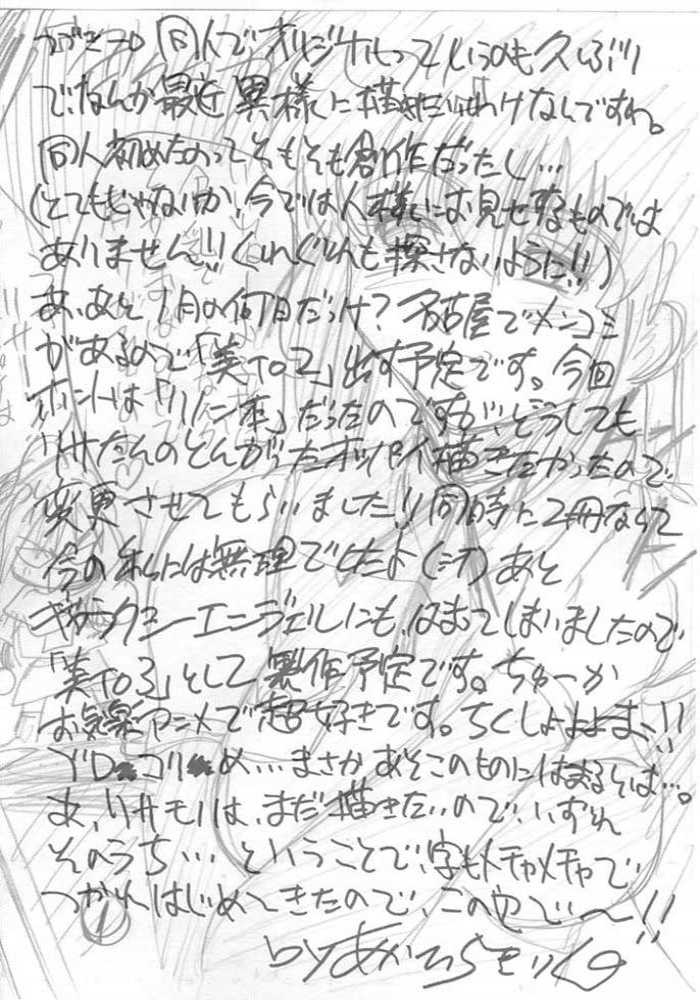 つづき→ 同人でオリジナルっていうのも久しぶり
で、なんか最近異様に描きたいわけなんですね。
同人初めたのってそもそも創作だったし…
(とてもじゃないが、今では人様にお見せするものでは
ありません!!くれぐれも探さないように!!)
あ、あと1月の何日だっけ?名古屋でメンコミ
があるので「美to2」出す予定です。今回
ホントは「リノン本」だったのですが、どうしても
リサたんのとんがったオッパイ描きたかったので
変更させてもらいました!!同時に2冊なんて
今の私には無理でしたよ(汗)あと
ギャラクシーエンジェルにも、はまってしまいましたので
「美to3」として製作予定です。ちゅーか
お気楽アニメで超好きです。ちくしょおおお、!!
ブロ コリ め…まさかあそこのものにはまるとは…。
あ、リサモノは、まだ描きたいので、いずれ
そのうち…ということで、字もメチャメチャで
つかれはじめてきたので、この辺で〜!!
byあかひらきりん